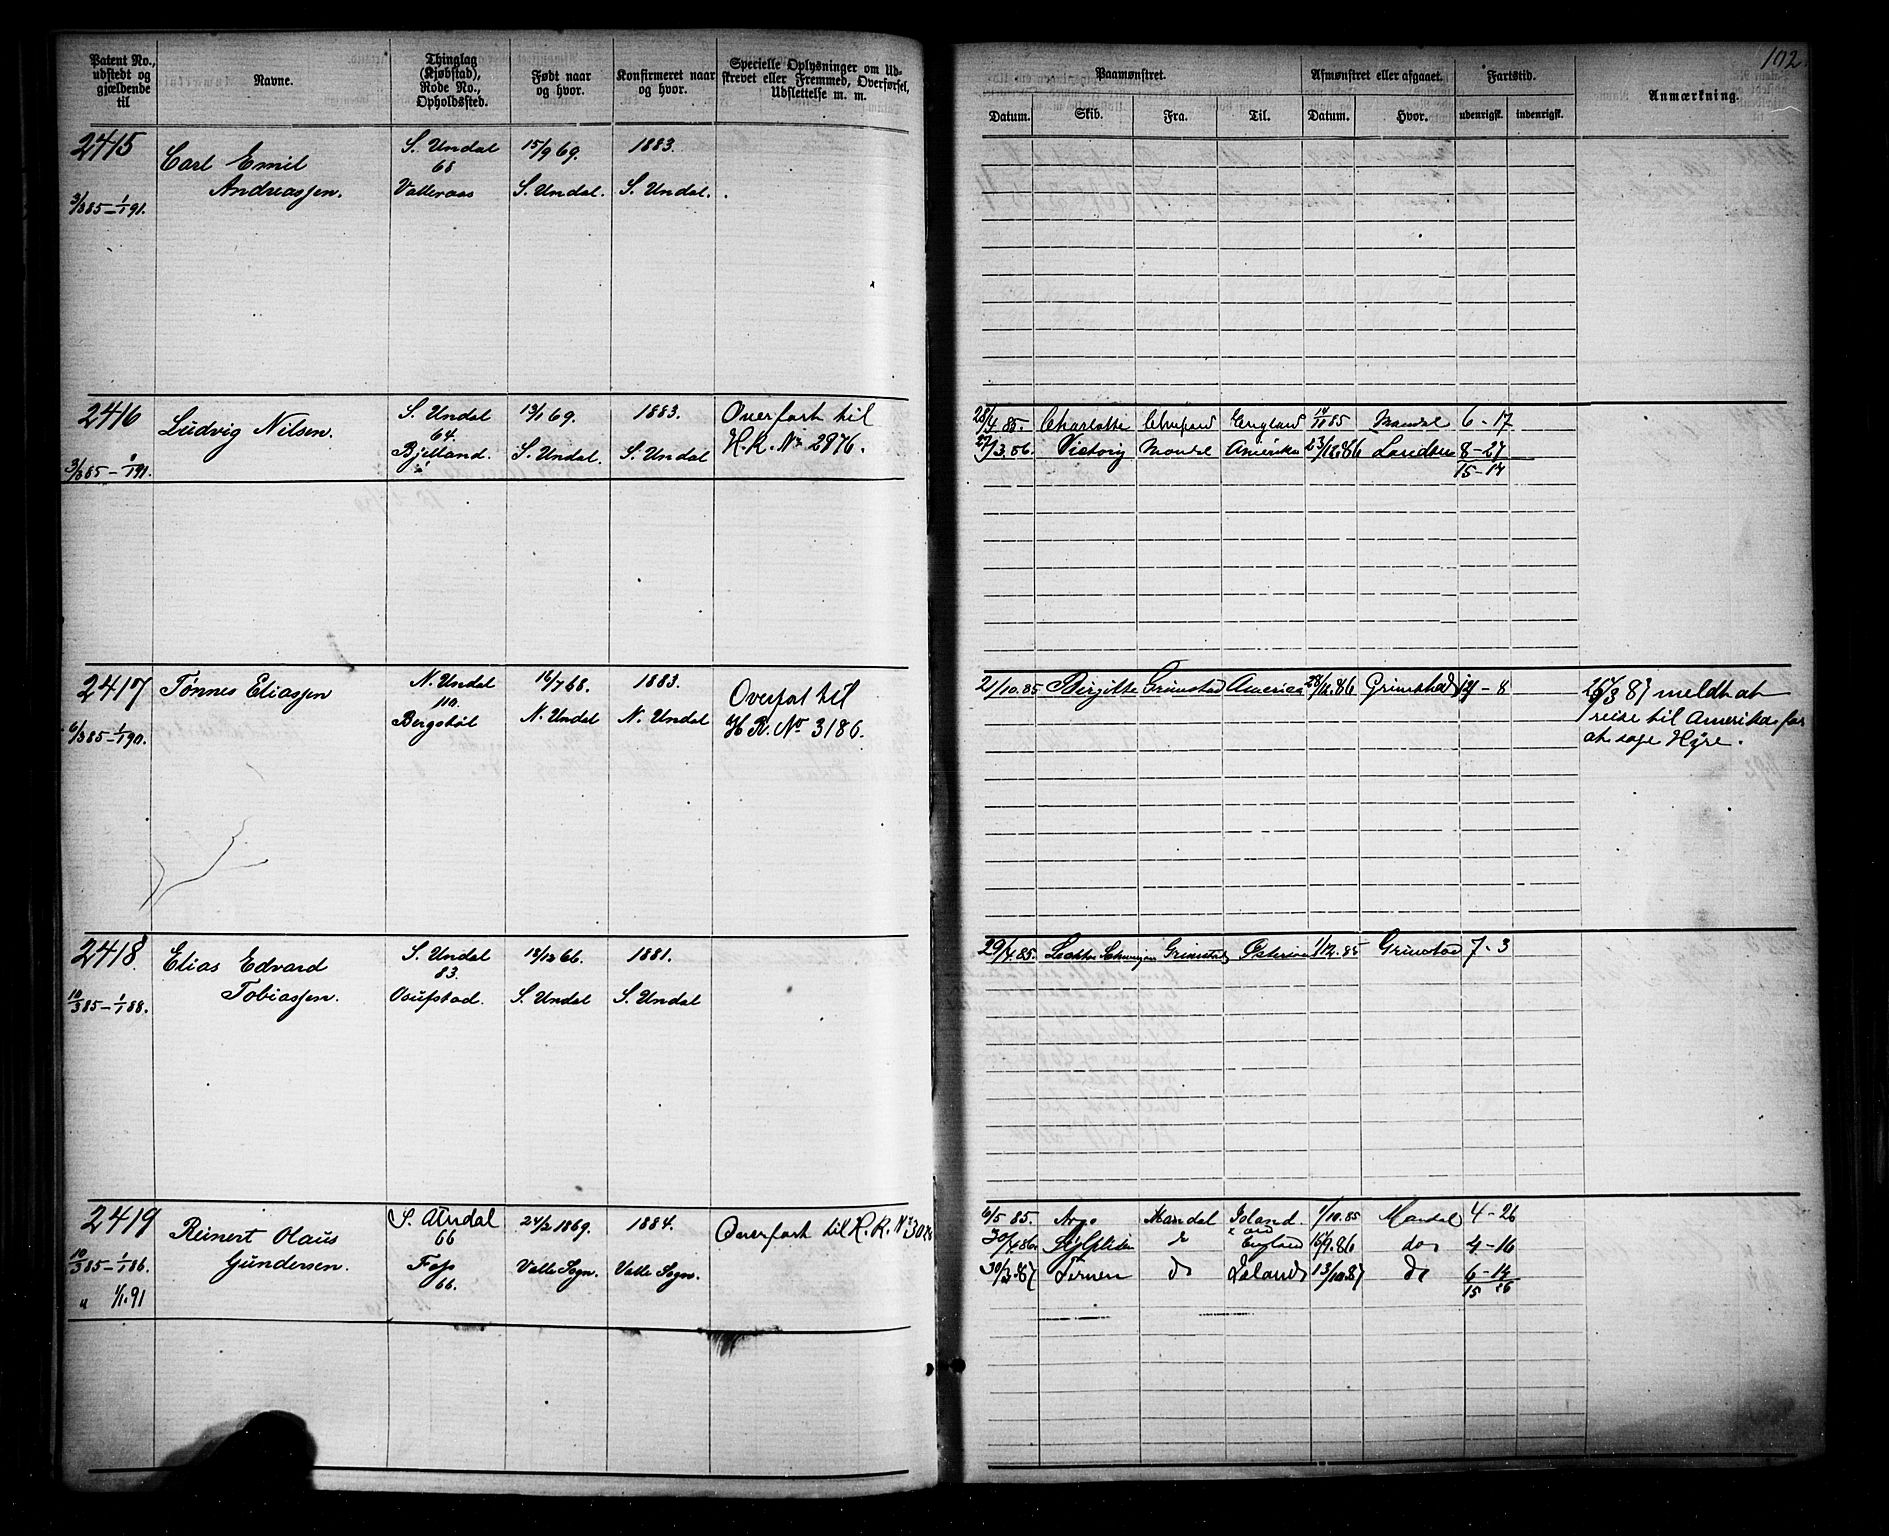 102
Patent No., udstedt og gjældende til
Navne.
Thinglag (Kjøbstad), Rode No., Opholdssted.
Født naar og hvor.
Konfirmeret naar og hvor.
Specielle Oplysninger om Udskrevet eller Fremmed, Overførsel, Udslettelse m. m.
Paamønstret.
Datum. Skib. Fra. Til.
Afmønstret eller afgaaet.
Datum. Hvor.
Fartstid.
udenrigsk. indenrigsk.
Anmærkning.
2415 Carl Emil S. Undal 15/9 69. 1883.
68
Andreassen. Valleraas S. Undal. S. Undal.
3/3 85 – 1/1 91.
2416 Ludvig Nilsen. S. Undal 13/1 69. 1883. Overført til
64.
Bjelland. S. Undal. S. Undal H. R. No 2876.
3/3 85 – 1/1 91.
28/4 85. Charlotte England 14/11 85 Mandal 6 – 17
Victory Mandal Amerika 23/12.86 8 – 27
15 – 14
2417 Tønnes Eliassen N. Undal 16/7 68. 1883. Overført til
110.
Bergstøl N. Undal N. Undal H R. No 3186.
6/3 85 – 1/1 90.
21/10.85 Birgitte Grimstad America 28/12.86 Grimstad 14 – 8
26/3 87 meldt at
reise til Amerika for
at søge Hyre.
2418 Elias Edvard S. Undal 18/12 66. 1881.
83.
Tobiassen. Ousfstad. S. Undal S. Undal
10/3 85 – 1/1 88.
29/4.85. Grimstad 1/12.85 Grimstad 7 – 3
2419 Reinert Olaus S. Undal 24/2 1869. 1884. Overført til H. R. No 302
66
Gundersen. Foss Valle Sogn. Valle Sogn.
66.
10/3 85 – 1/1 86.
" 1/1.91
6/5 85. Argo Mandal Island 1/10.85 Mandal 4 – 26
30/4 86. do England 15/9.86 do 4 – 16
30/3.87 Ternen do Island 13/10.87 do 6 – 14
15 26